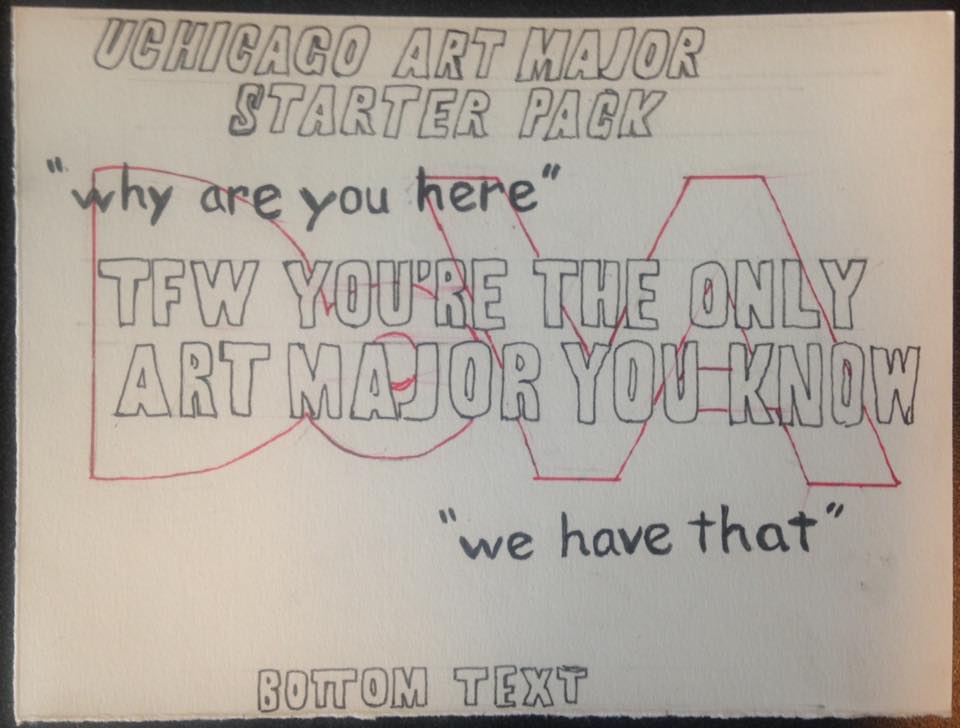 UCHICAGO ART MAJOR
STARTER PACK
"why are you here"
DoVA
TFW YOU'RE THE ONLY
ART MAJOR YOU KNOW
"we have that"
BOTTOM TEXT